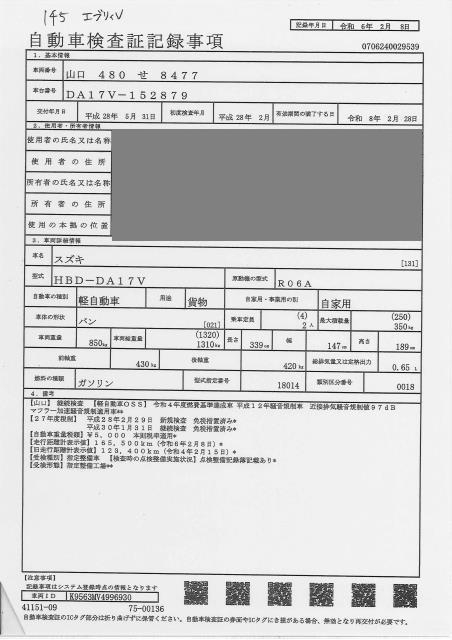 145 エブリィV
記録年月日 令和 6年 2月 8日
自動車検査証記録事項
0706240029539
1．基本情報
車両番号 山口 480 せ 8477
車台番号 DA17V-152879
交付年月日 平成 28年 5月 31日 初度検査年月 平成 28年 2月 有効期間の満了する日 令和 8年 2月 28日
2．使用者・所有者情報
使用者の氏名又は名称
使用者の住所
所有者の氏名又は名称
所有者の住所
使用の本拠の位置
3．車両詳細情報
車名 スズキ [131]
型式 HBD-DA17V 原動機の型式 R06A
自動車の種別 軽自動車 用途 貨物 自家用・事業用の別 自家用
車体の形状 バン [021] 乗車定員 (4) 2人 最大積載量 (250) 350kg
車両重量 850kg 車両総重量 (1320) 1310kg 長さ 339cm 幅 147cm 高さ 189cm
前軸重 430kg 後軸重 420kg 総排気量又は定格出力 0.65L
燃料の種類 ガソリン 型式指定番号 18014 類別区分番号 0018
4．備考
【山口】 継続検査 【軽自動車OSS】 令和4年度燃費基準達成車 平成12年騒音規制車 近接排気騒音規制値97dB
マフラー加速騒音規制適用車**
【27年度税制】 平成28年2月29日 新規検査 免税措置済み*
平成30年1月31日 継続検査 免税措置済み*
【自動車重量税額】¥5,000 本則税率適用*
【走行距離計表示値】155,500km（令和6年2月8日）*
【旧走行距離計表示値】123,400km（令和4年2月15日）*
【受検種別】指定整備車 【検査時の点検整備実施状況】点検整備記録簿記載あり*
【受検形態】指定整備工場**
【注意事項】
記録事項はシステム登録時点の情報となります
車両ID K9563MV4996930
41151-09 75-00136
自動車検査証のICタグ部分は折り曲げずに保管ください。自動車検査証の券面やICタグにき損がある場合、無効となり再交付が必要です。